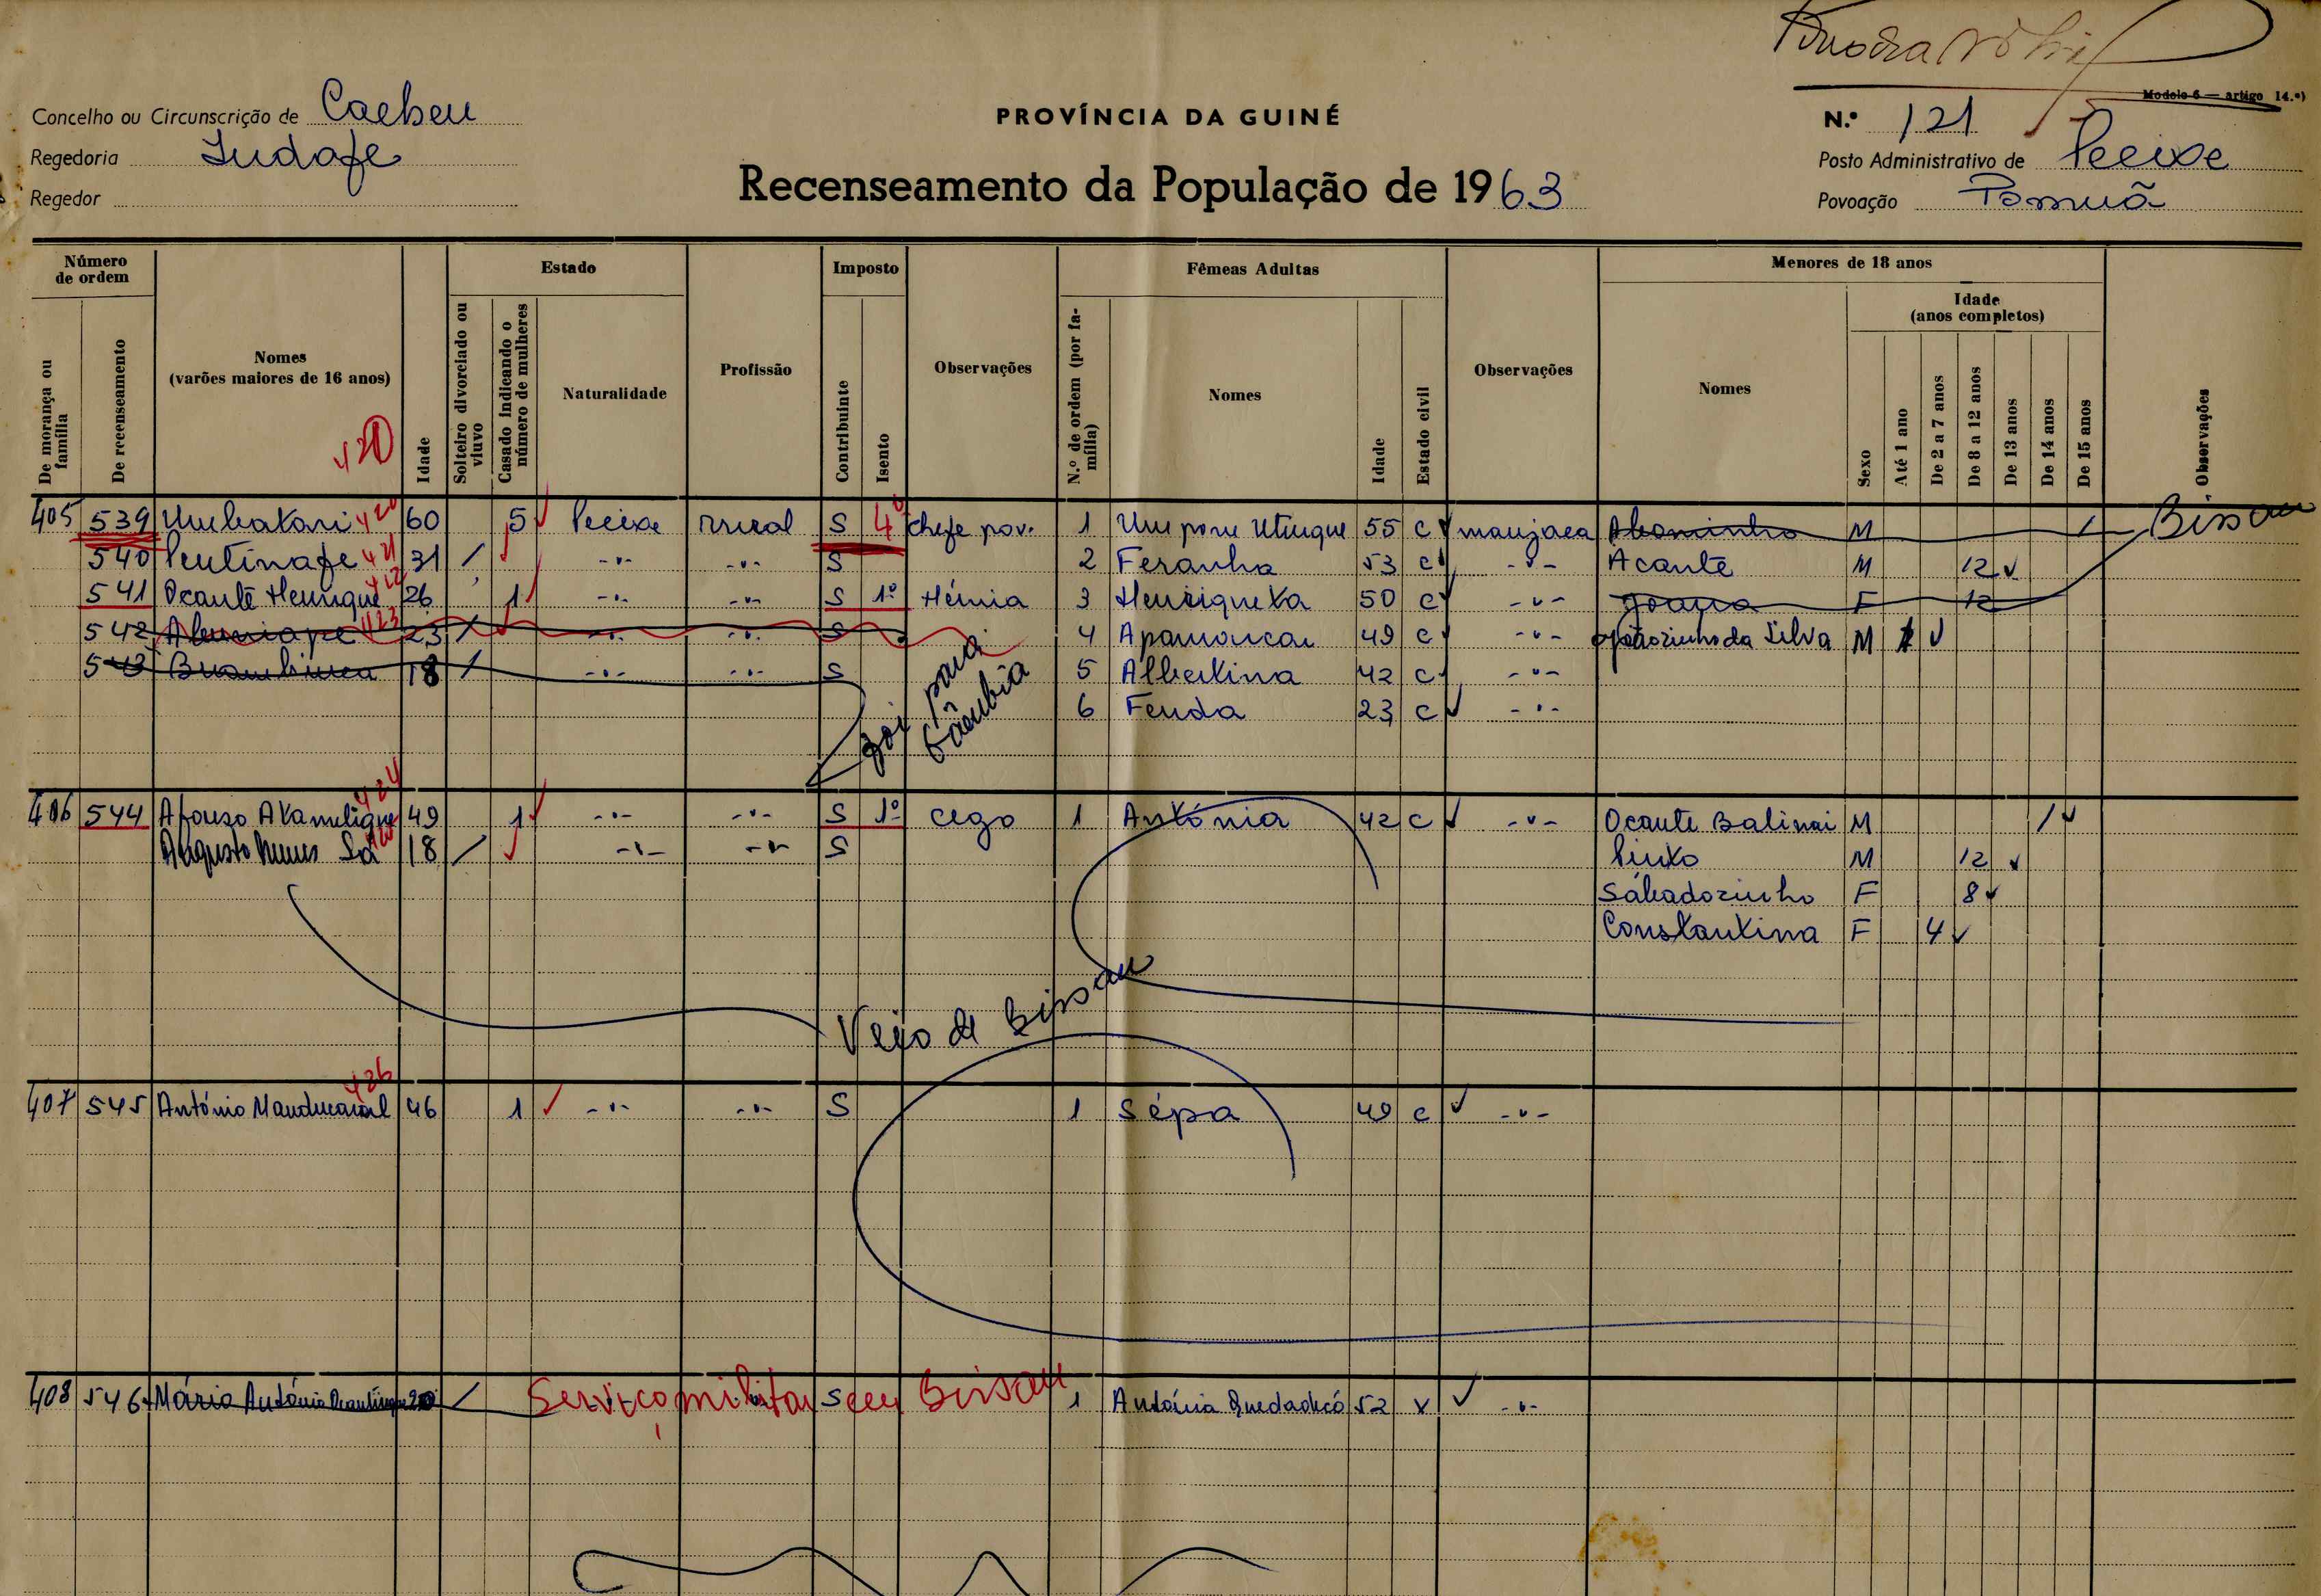 Modelo 6 — artigo 14.º)
Concelho ou Circunscrição de Cacheu
PROVÍNCIA DA GUINÉ
N.º 121
Regedoria
Posto Administrativo de Pecixe
Recenseamento da População de 1963
Regedor
Povoação
Número de ordem
De morança ou família
De recenseamento
Nomes (varões maiores de 16 anos)
420
Idade
Estado
Solteiro divorciado ou viuvo
Casado indicando o número de mulheres
Naturalidade
Profissão
Imposto
Contribuinte
Isento
Observações
Fêmeas Adultas
N.º de ordem (por família)
Nomes
Idade
Estado civil
Observações
Menores de 18 anos
Nomes
Sexo
Idade (anos completos)
Até 1 ano
De 2 a 7 anos
De 8 a 12 anos
De 13 anos
De 14 anos
De 15 anos
Observações
405 539 420 60 5 Pecixe rural S 4º chefe pov. 1 55 c manjaca M 1 Bissau
540 421 31 / -"- -"- S 2 Feranha 53 c -"- Acante M 12
541 Ocante Henrique 422 26 1 -"- -"- S 1º Hérnia 3 Henriqueta 50 c -"- Joana F 12
542 423 23 / -"- -"- S 4 49 c -"- Joãozinho da Silva M 1
543 18 / -"- -"- S foi para Gâmbia 5 Albertina 42 c -"-
6 Fenda 23 c -"-
406 544 Afonso 424 49 1 -"- -"- S 1º cego 1 Antónia 42 c -"- Ocante Balinai M 1
Augusto Nunes Sá 18 / -"- -"- S Pinto M 12
Sábadozinho F 8
Constantina F 4
Veio de Bissau
407 545 António 426 46 1 -"- -"- S 1 Sépa 49 c -"-
408 546 Mário António 20 / Serviço militar S em Bissau 1 Antónia 52 v -"-